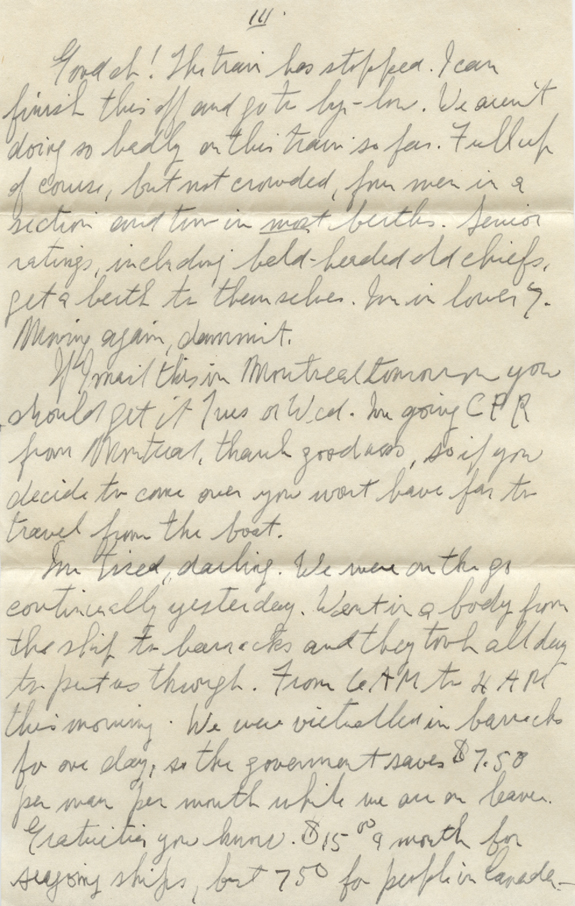 III.
Good oh! The train has stopped. I can
finish this off and go to by-low. We aren't
doing so badly on this train so far. Full up
of course, but not crowded, four men in a
section and two in most berths. Senior
ratings, including bald-headed old chiefs,
get a berth to themselves. I'm in lower 7.
Moving again, dammit.
If I mail this in Montreal tomorrow you
should get it Tues or Wed. I'm going CPR
from Montreal, thank goodness, so if you
decide to come over you wont have far to
travel from the boat.
I'm tired, darling. We were on the go
continually yesterday. Went in a body from
the ship to barracks and they took all day
to put us through. From 6 AM to AM
this morning. We were victualled in barracks
for one day, so the goverment saves $7.50
per man per month while we are on leave.
Gratuities you know. $15.00 a month for
seagoing ships, but 7 50 for people in Canada-